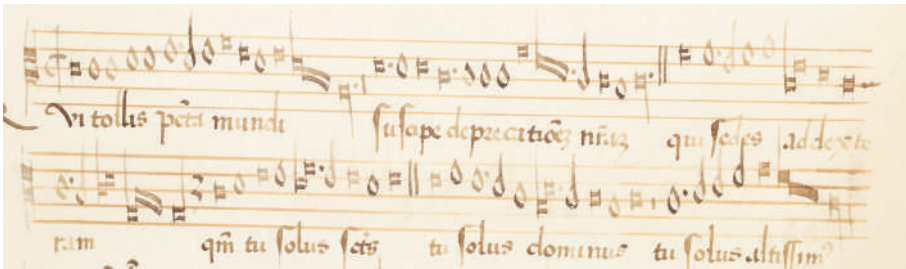 vi tollis pctā mundi suscipe deprecatiōeȝ nr̄aȝ qui sedes ad dexte
ram qm̄ tu solus sctūs tu solus dominus tu solus altissimꝰ